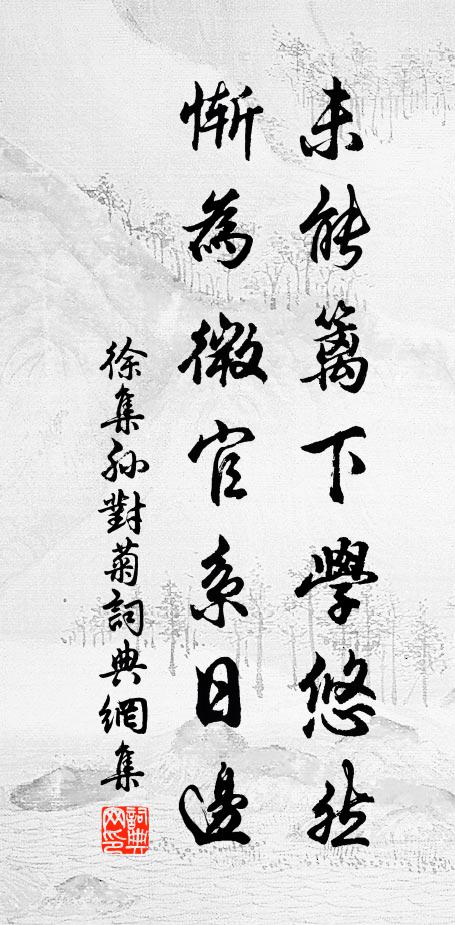 未能篱下學悠然
慚為微官系日邊
徐集孫對菊詞典網集
詞典网印